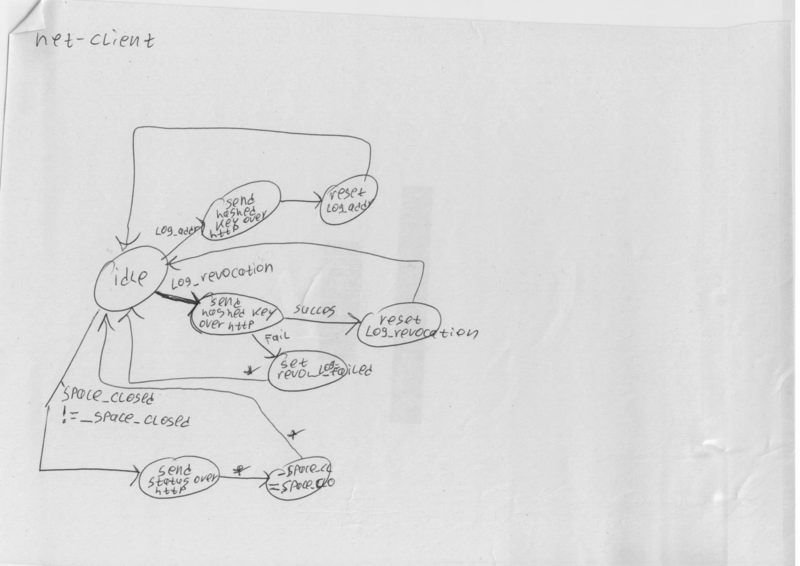 net-client
send
hashed
key over
http
reset
Log_addr
Log_addr
idle
Log_revocation
send
hashed key
over http
succes
reset
Log_revocation
Fail
set
*
space_closed
!=_space_closed
*
send
status over
http
*
_space_cl
=space_clo